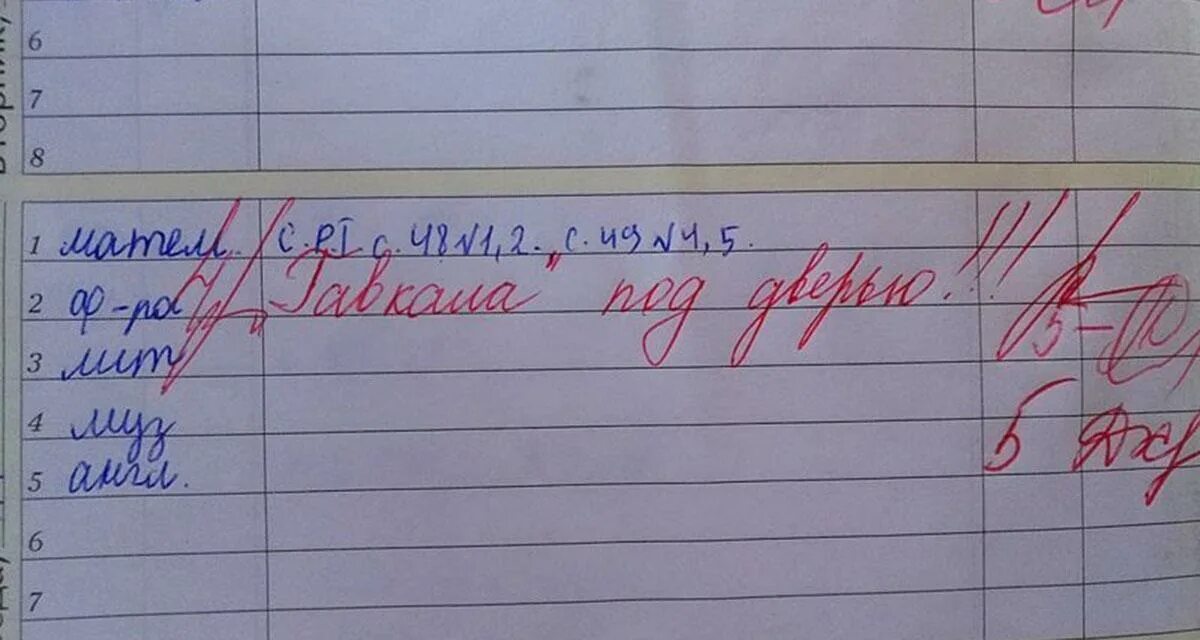 6
7
8
1 матем. С. РІ с. 48 №1, 2. с. 49 №4, 5.
2 ф-ра „Гавкала" под дверью!!!
3 лит 5-
4 муз
5 англ. 5
6
7